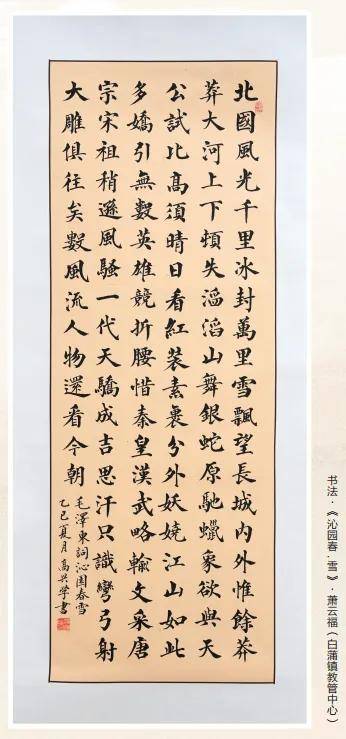 北國風光千里冰封萬里雪飄望長城内外惟餘莽
莽大河上下頓失滔滔山舞銀蛇原馳蠟象欲與天
公試比高須晴日看紅裝素裹分外妖嬈江山如此
多嬌引無數英雄競折腰惜秦皇漢武略輸文采唐
宗宋祖稍遜風騷一代天驕成吉思汗只識彎弓射
大雕俱往矣數風流人物還看今朝
毛澤東詞沁園春雪
乙巳夏月高书
书法·《沁园春.雪》·萧云福（白蒲镇教管中心）